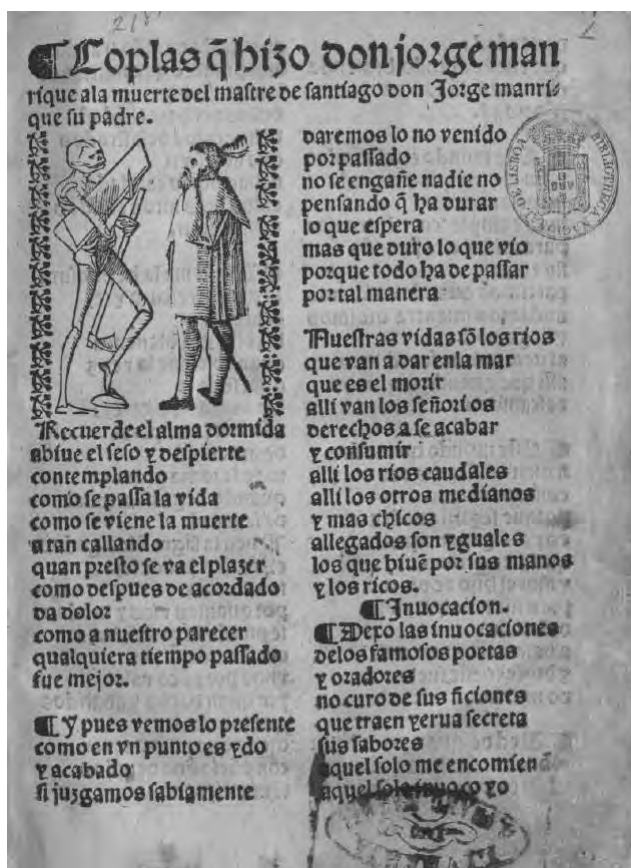 218
¶Coplas q̄ hizo don jorge man
rique ala muerte del mastre de santiago don Jorge manri⸗
que su padre.
Recuerde el alma dormida
abiue el seso y despierte
contemplando
como se passa la vida
como se viene la muerte
a tan callando
quan presto se va el plazer
como despues de acordado
da dolor
como a nuestro parecer
qualquiera tiempo passado
fue mejor.
¶Y pues vemos lo presente
como en vn punto es ydo
y acabado
si juzgamos sabiamente
daremos lo no venido
por passado
no se engañe nadie no
pensando q̄ ha durar
lo que espera
mas que duro lo que vio
porque todo ha de passar
por tal manera
Nuestras vidas sō los rios
que van a dar enla mar
que es el morir
alli van los señorios
derechos a se acabar
y consumir
alli los rios caudales
alli los otros medianos
y mas chicos
allegados son yguales
los que biuē por sus manos
y los ricos.
¶Inuocacion.
¶Dexo las inuocaciones
delos famosos poetas
y oradores
no curo de sus ficiones
que traen yerua secreta
sus sabores
aquel solo me encomiendo
aquel solo inuoco yo
BIBLIOTHECA NACIONAL DE LISBOA